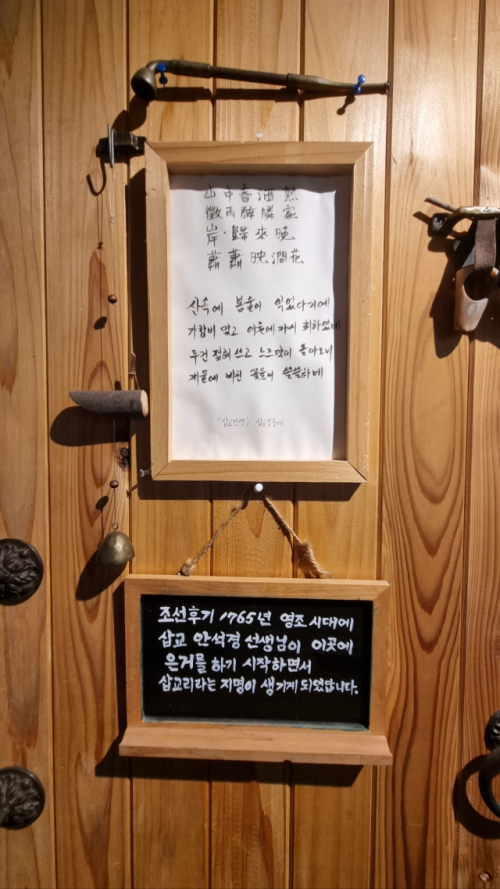 山中春酒熟
微雨醉隣家
岸 歸來晚
蕭蕭映澗花
산속에 봄술이 익었다기에
가랑비 맞고 이웃에 가서 취하였네
두건 젖혀 쓰고 느즈막이 돌아오니
개울에 비친 꽃들이 쓸쓸하네
조선후기 1765년 영조시대에
삽교 안석경 선생님이 이곳에
은거를 하기 시작하면서
삽교리라는 지명이 생기게 되었답니다.